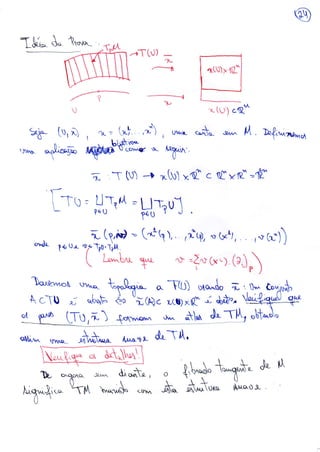 24
Ideia da Prova.
TₚM
T(U)
x̄
x(U)×ℝⁿ
p
U
x
x(U) ⊂ ℝⁿ
Seja (U,x), x = (x¹,...,xⁿ), uma carta em M. Definiremos
uma aplicação bijetiva como a seguir:
x̄ : T(U) → x(U) × ℝⁿ ⊂ ℝⁿ × ℝⁿ = ℝ²ⁿ
[TU = ⋃ TₚM = ⨆ TₚU].
p∈U p∈U
x̄(p,v) = (x¹(p),...,xⁿ(p), v(x¹),...,v(xⁿ))
onde p∈U e v∈TₚU=TₚM.
(Lembre que v = Σ v(xᵢ)·(∂ᵢ)ₚ)
Daremos uma topologia a T(U) usando x̄: Um conjunto
A ⊂ TU é aberto se x̄(A) ⊂ x(U)×ℝⁿ é aberto. Verifique que
os pares (TU, x̄) formam um atlas de TM, obtendo
assim uma estrutura suave de TM.
Verifique os detalhes!
De agora em diante, o fibrado tangente de M
significa TM munido com esta estrutura suave.